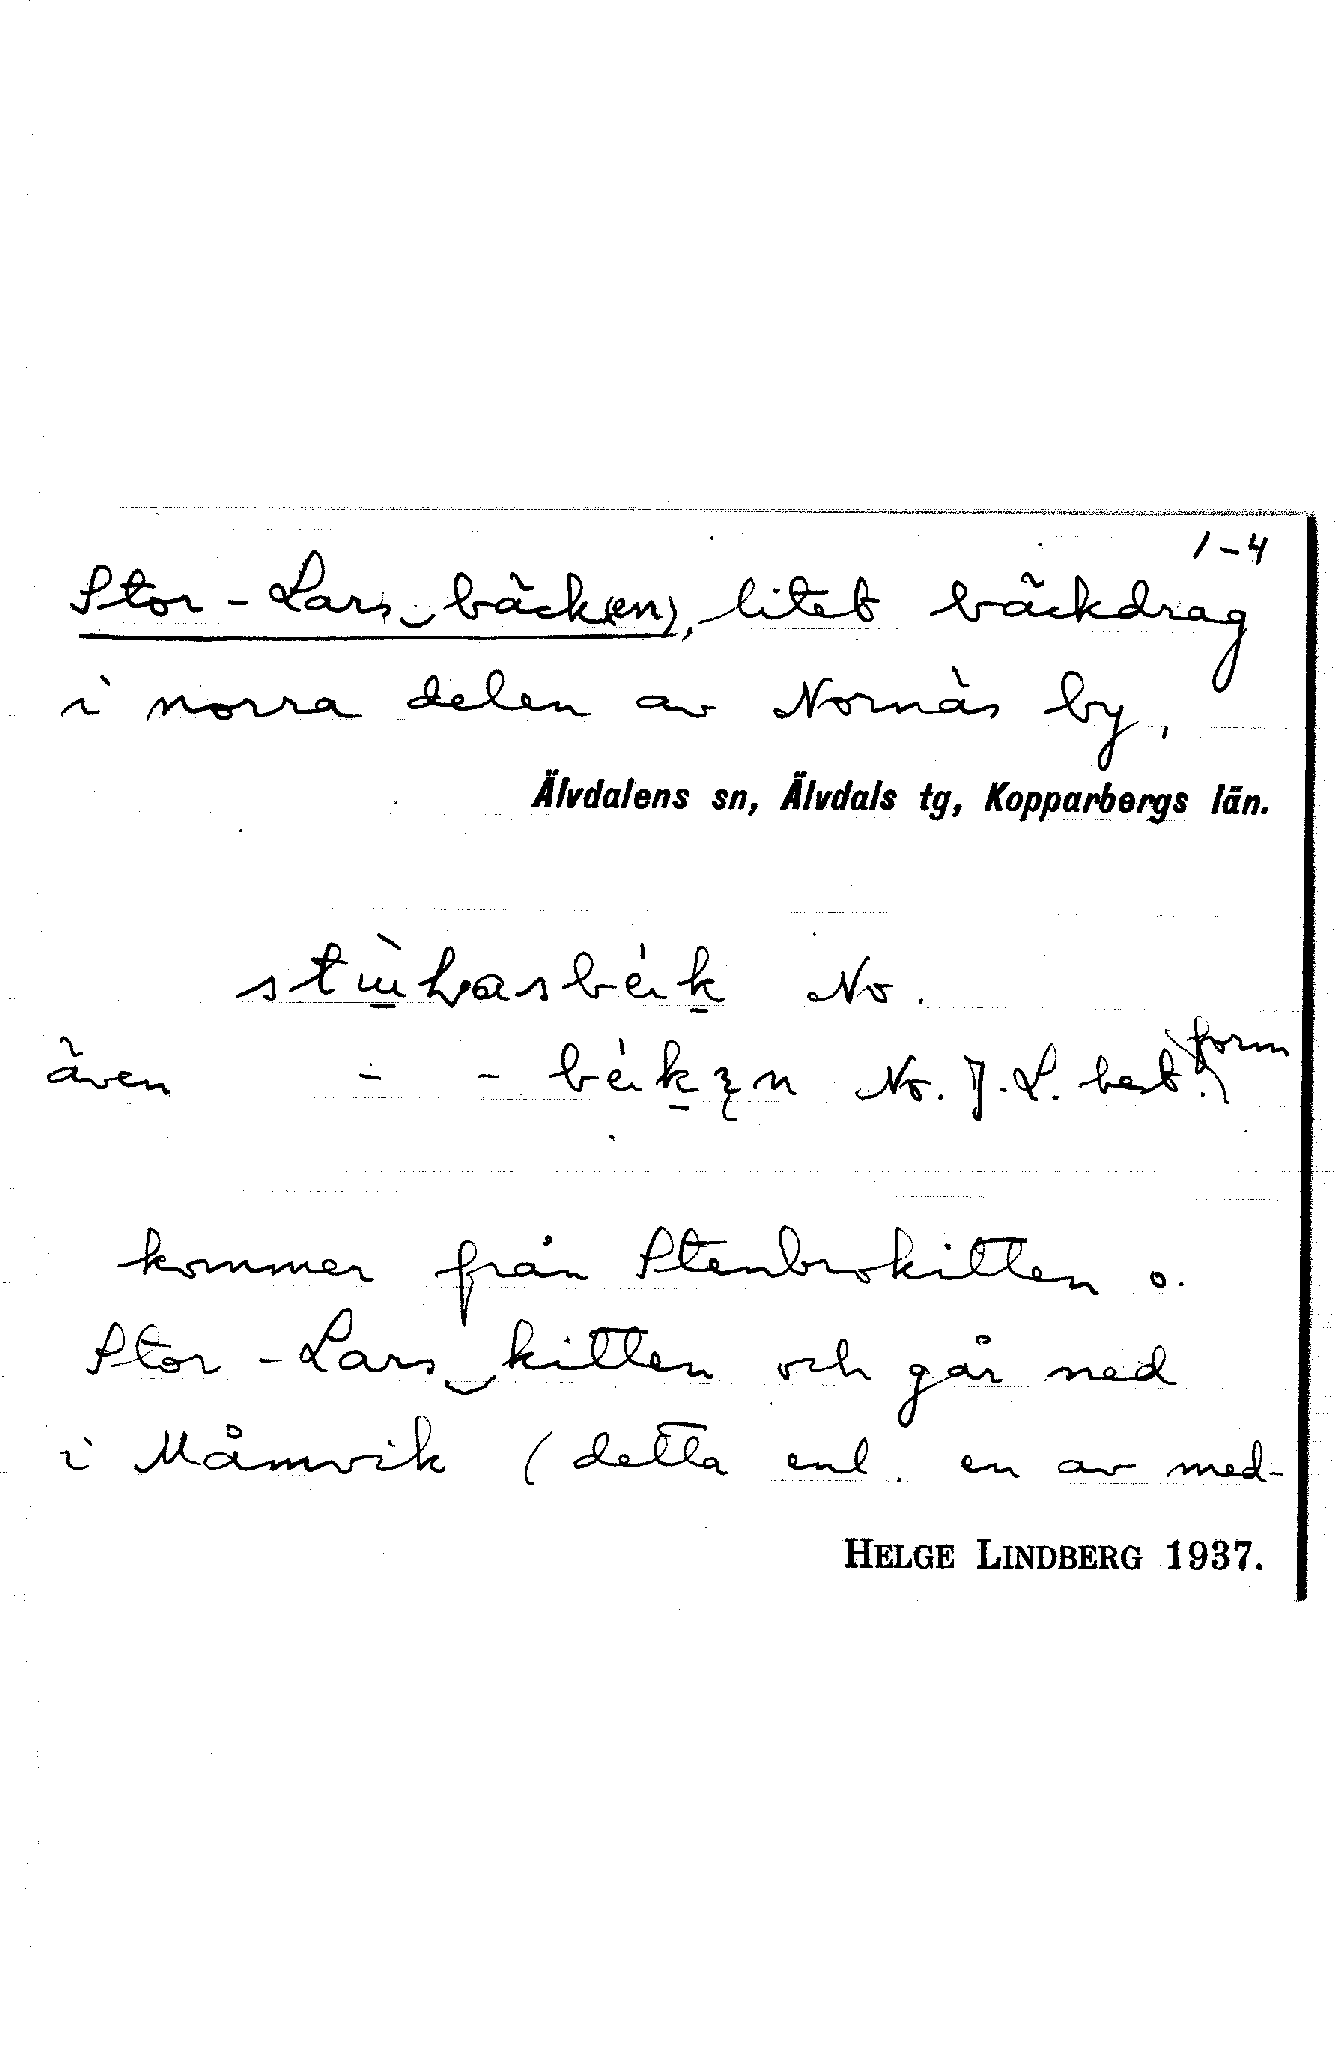 1-4
Stor-Lars‿bäck(en), litet bäckdrag
i norra delen av Nornäs by.
Älvdalens sn, Älvdals tg, Kopparbergs län.
No.
även - - No. J. L. best. form
kommer från Stenbrokitten o.
Stor-Lars‿kitten och går ned
i Måmvik (detta enl. en av med-
HELGE LINDBERG 1937.